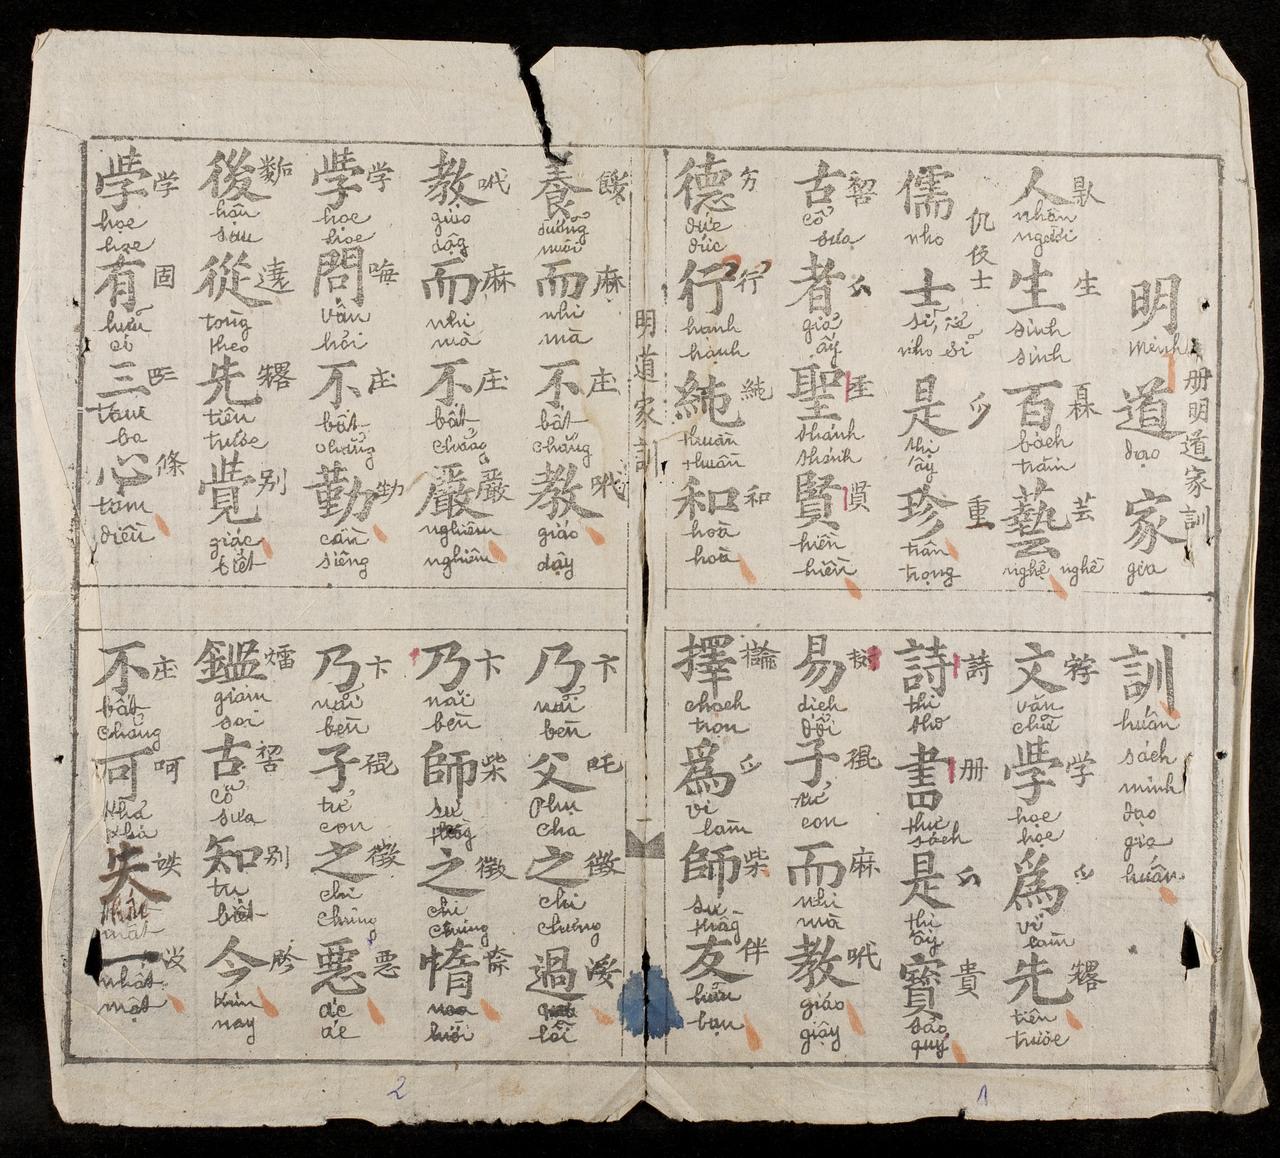 明道家訓
mênh đạo gia huấn
sách minh đạo gia huấn
册明道家訓
人生百藝文学爲先
nhân sinh bách nghệ văn học vi tiên
người sinh trăm nghề chữ học làm trước
儒士是珍詩書是寶
nho sĩ thị trân thi thư thị bảo
nho sĩ ấy trọng thơ sách ấy quý
古者聖賢易子而教
cổ giả thánh hiền dịch tử nhi giáo
xưa ấy thánh hiền đổi con mà giậy
德行純和擇爲師友
đức hành thuần hoà trạch vi sư hữu
đức hành thuần hoà chọn làm thầy bạn
明道家訓
養而不教乃父之過
dưỡng nhi bất giáo nãi phụ chi
nuôi mà chẳng dậy bèn cha chưng lỗi
教而不嚴乃師之惰
giáo nhi bất nghiêm nãi sư chi
dậy mà chẳng nghiêm bèn chưng
学問不勤乃子之惡
học vấn bất cần nãi tử chi ác
học hỏi chẳng siêng bèn con chưng ác
後從先覺鑑古知今
hậu tòng tiên giác giám cổ tri kim
sau theo trước biết soi xưa biết nay
学有三心不可失一
học hữu tam tâm bất khả thất nhất
học có ba điều chẳng khả mất một
2
1